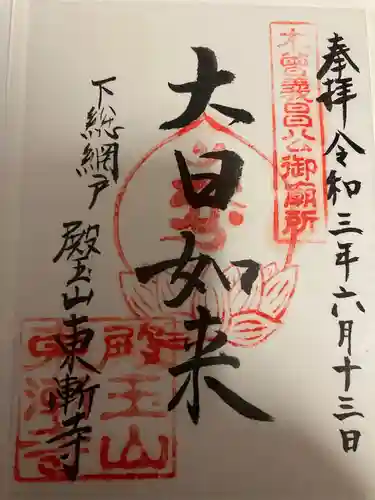 奉拝 令和三年六月十三日
木曽義昌公御廟所
大日如来
下総網戸 殿玉山東漸寺
殿玉山
東漸寺